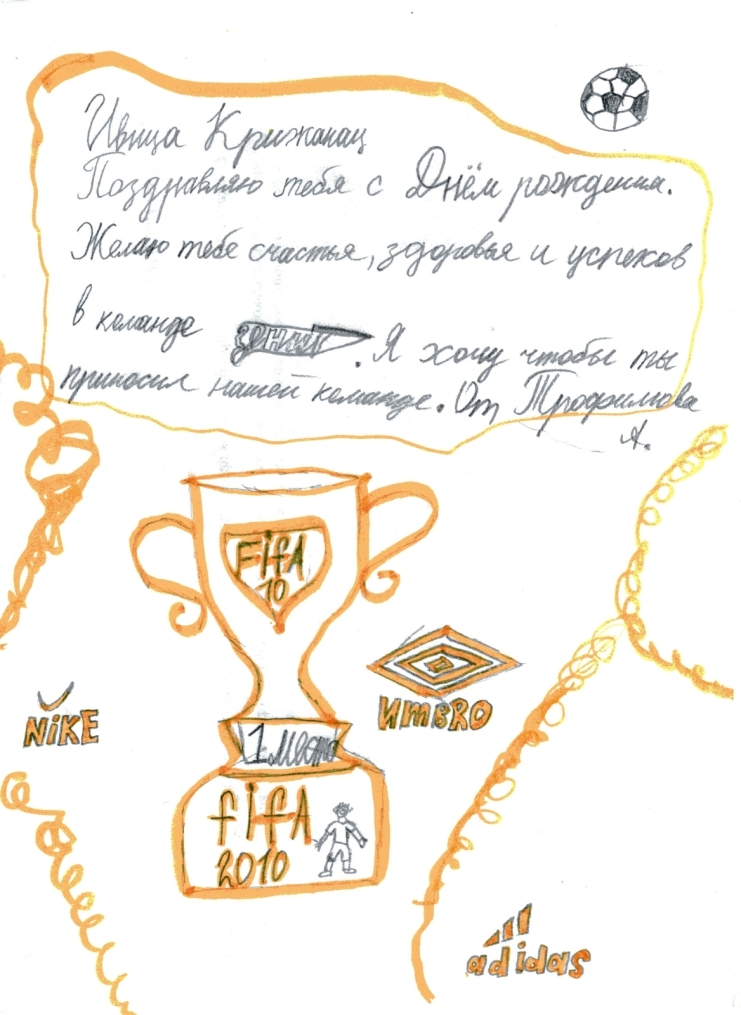 Ивица Крижанац
Поздравляю тебя с Днём рождения.
Желаю тебе счастья, здоровья и успехов
в команде зенит. Я хочу чтобы ты
приносил нашей команде. От Трофимова
А.
FifA
10
NiKE
UmBRO
1 место
fifA
2010
adidas